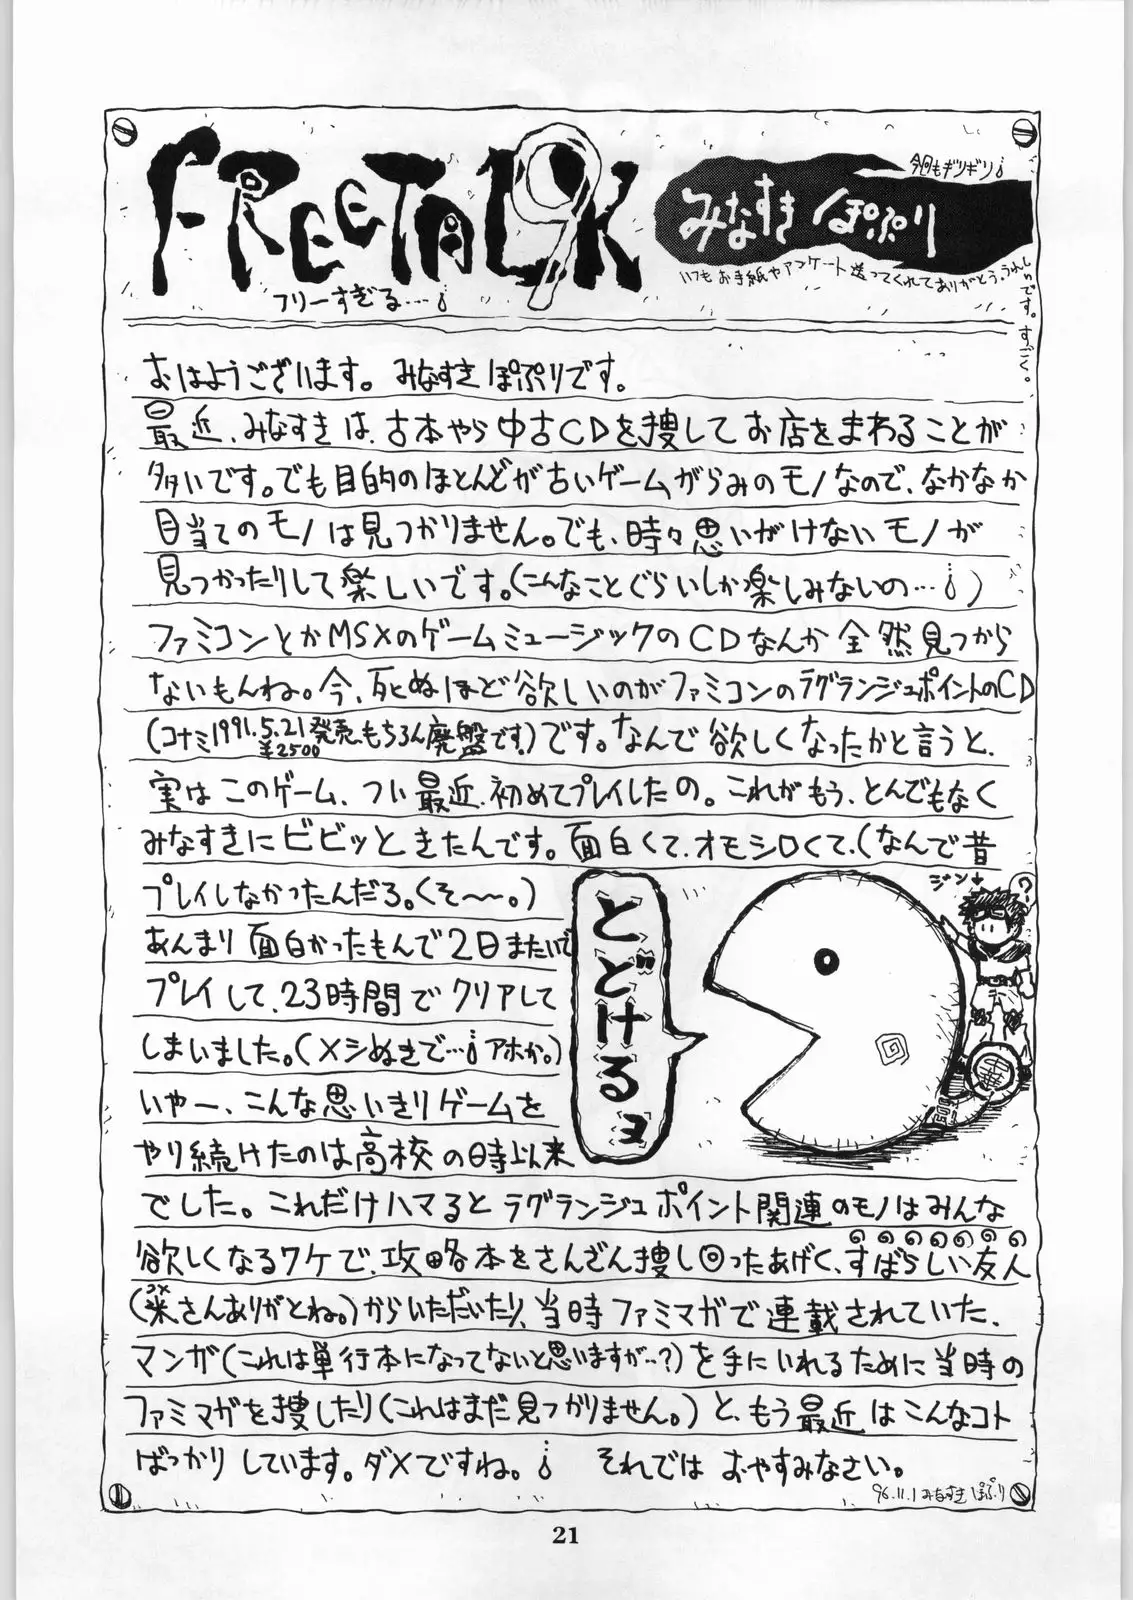 FREETALK 9
フリーすぎる…
今回もギリギリ
みなすき ぽぷり
いつもお手紙やアンケート送ってくれてありがとう、うれしいです。すごく。
おはようございます。みなすきぽぷりです。
最近、みなすきは、古本やら中古CDを捜してお店をまわることが
多いです。でも目的のほとんどが古いゲームがらみのモノなので、なかなか
目当てのモノは見つかりません。でも、時々思いがけないモノが
見つかったりして楽しいです。(こんなことぐらいしか楽しみないの…)
ファミコンとかMSXのゲームミュージックのCDなんか全然見つから
ないもんね。今、死ぬほど欲しいのがファミコンのラグランジュポイントのCD
(コナミ1991.5.21発売、もちろん廃盤です。)です。なんで欲しくなったかと言うと、
¥2500
実はこのゲーム、つい最近、初めてプレイしたの。これがもう、とんでもなく
みなすきにビビッときたんです。面白くて、オモシロくて、(なんで昔
プレイしなかったんだろ。くそ〜。)
あんまり面白かったもんで2日またいで
プレイして、23時間でクリアして
しまいました。(メシぬきで…アホか。)
いやー、こんな思いきりゲームを
やり続けたのは高校の時以来
とどけるヨ
ジン↓
?
中華
でした。これだけハマるとラグランジュポイント関連のモノはみんな
欲しくなるワケで、攻略本をさんざん捜し回ったあげく、すばらしい友人
(米さんありがとね。)からいただいたり、当時ファミマガで連載されていた、
コメ
マンガ(これは単行本になってないと思いますが…?)を手にいれるために当時の
ファミマガを捜したり(これはまだ見つかりません。)と、もう最近はこんなコト
ばっかりしています。ダメですね。 それではおやすみなさい。
'96.11.1 みなすき ぽぷり
21